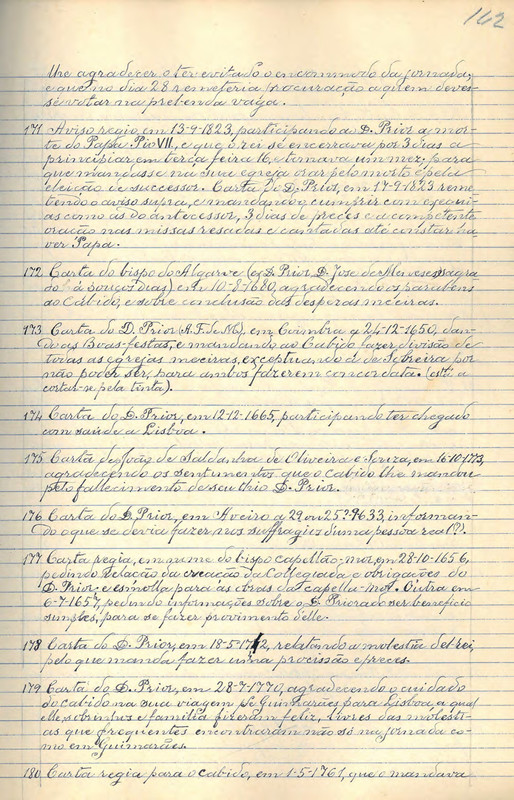 162
lhe agradecer o ter evitado o encommodo da jornada;
e que no dia 28 remeteria procuração a quem deves-
se votar na prebenda vaga.
171 Aviso regio, em 13-9-1823, participando a D. Prior a mor-
te do Papa Pio VII, e que o rei se encerrava por 3 dias a
principiar em terça feira 16, e tomava um mez, para
que mandasse na sua egreja orar pelo morto e pela
eleição de successor. Carta do D. Prior, em 17-9-1823 reme-
tendo o aviso supra, e mandando cumprir com exequi-
as como ás do antecessor, 3 dias de preces e a competente
oração nas missas resadas e cantadas até constar ha-
ver Papa.
172 Carta do bispo do Algarve (ex D. Prior D. José de Menezes sagra
do há poucos dias) em 10-8-1680, agradecendo os parabens
ao Cabido, e sobre conclusão das desperas meeiras.
173 Carta do D. Prior (A. F. de N.), em Coimbra a 24-12-1650, dan-
do as Boas-festas, e mandando ao Cabido fazer divisão de
todas as egrejas meeiras, exceptuando a de Sobreira por
não poder ser, para ambos fazerem concordata. (está a
cortar-se pela tinta).
174 Carta do D. Prior, em 12-12-1665, participando ter chegado
com saúde a Lisboa.
175 Carta de João de Saldanha de Oliveira e Souza, em 16-10-173,
agradecendo os sentimentos que o cabido lhe mandou
pelo fallecimento de seu thio D. Prior.
176 Carta do D. Prior, em Aveiro a 29 ou 25?-9-633, informan-
do o que se devia fazer nos suffragios d'uma pessoa real (?).
177 Carta regia, em nome do bispo capellão-mor, em 28-10-1656,
pedindo relação da creação da Collegiada e obrigações do
D. Prior, e esmolla para as obras da capella-mór. Outra em
6-7-1657, pedindo informações sobre o D. Priorado ser beneficio
simples, para se fazer provimento d'elle.
178 Carta do D. Prior, em 18-5-1742, relatando a molestia del rei,
pelo que manda fazer uma procissão e preces.
179 Carta do D. Prior, em 28-7-1770, agradecendo o cuidado
do cabido na sua viagem de Guimarães para Lisboa, a qual
elle, sobrinhos e familia fizeram feliz, livres das molesti-
as que frequentes encontraram não só na jornada co-
mo em Guimarães.
180 Carta regia para o cabido, em 1-5-1761, que o mandava